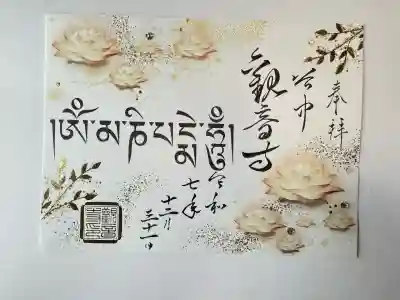 奉拝
谷中
觀音寺
།ཨོཾ་མ་ཎི་པདྨེ་ཧཱུྃ།
令和
七年
十二月
三十一日